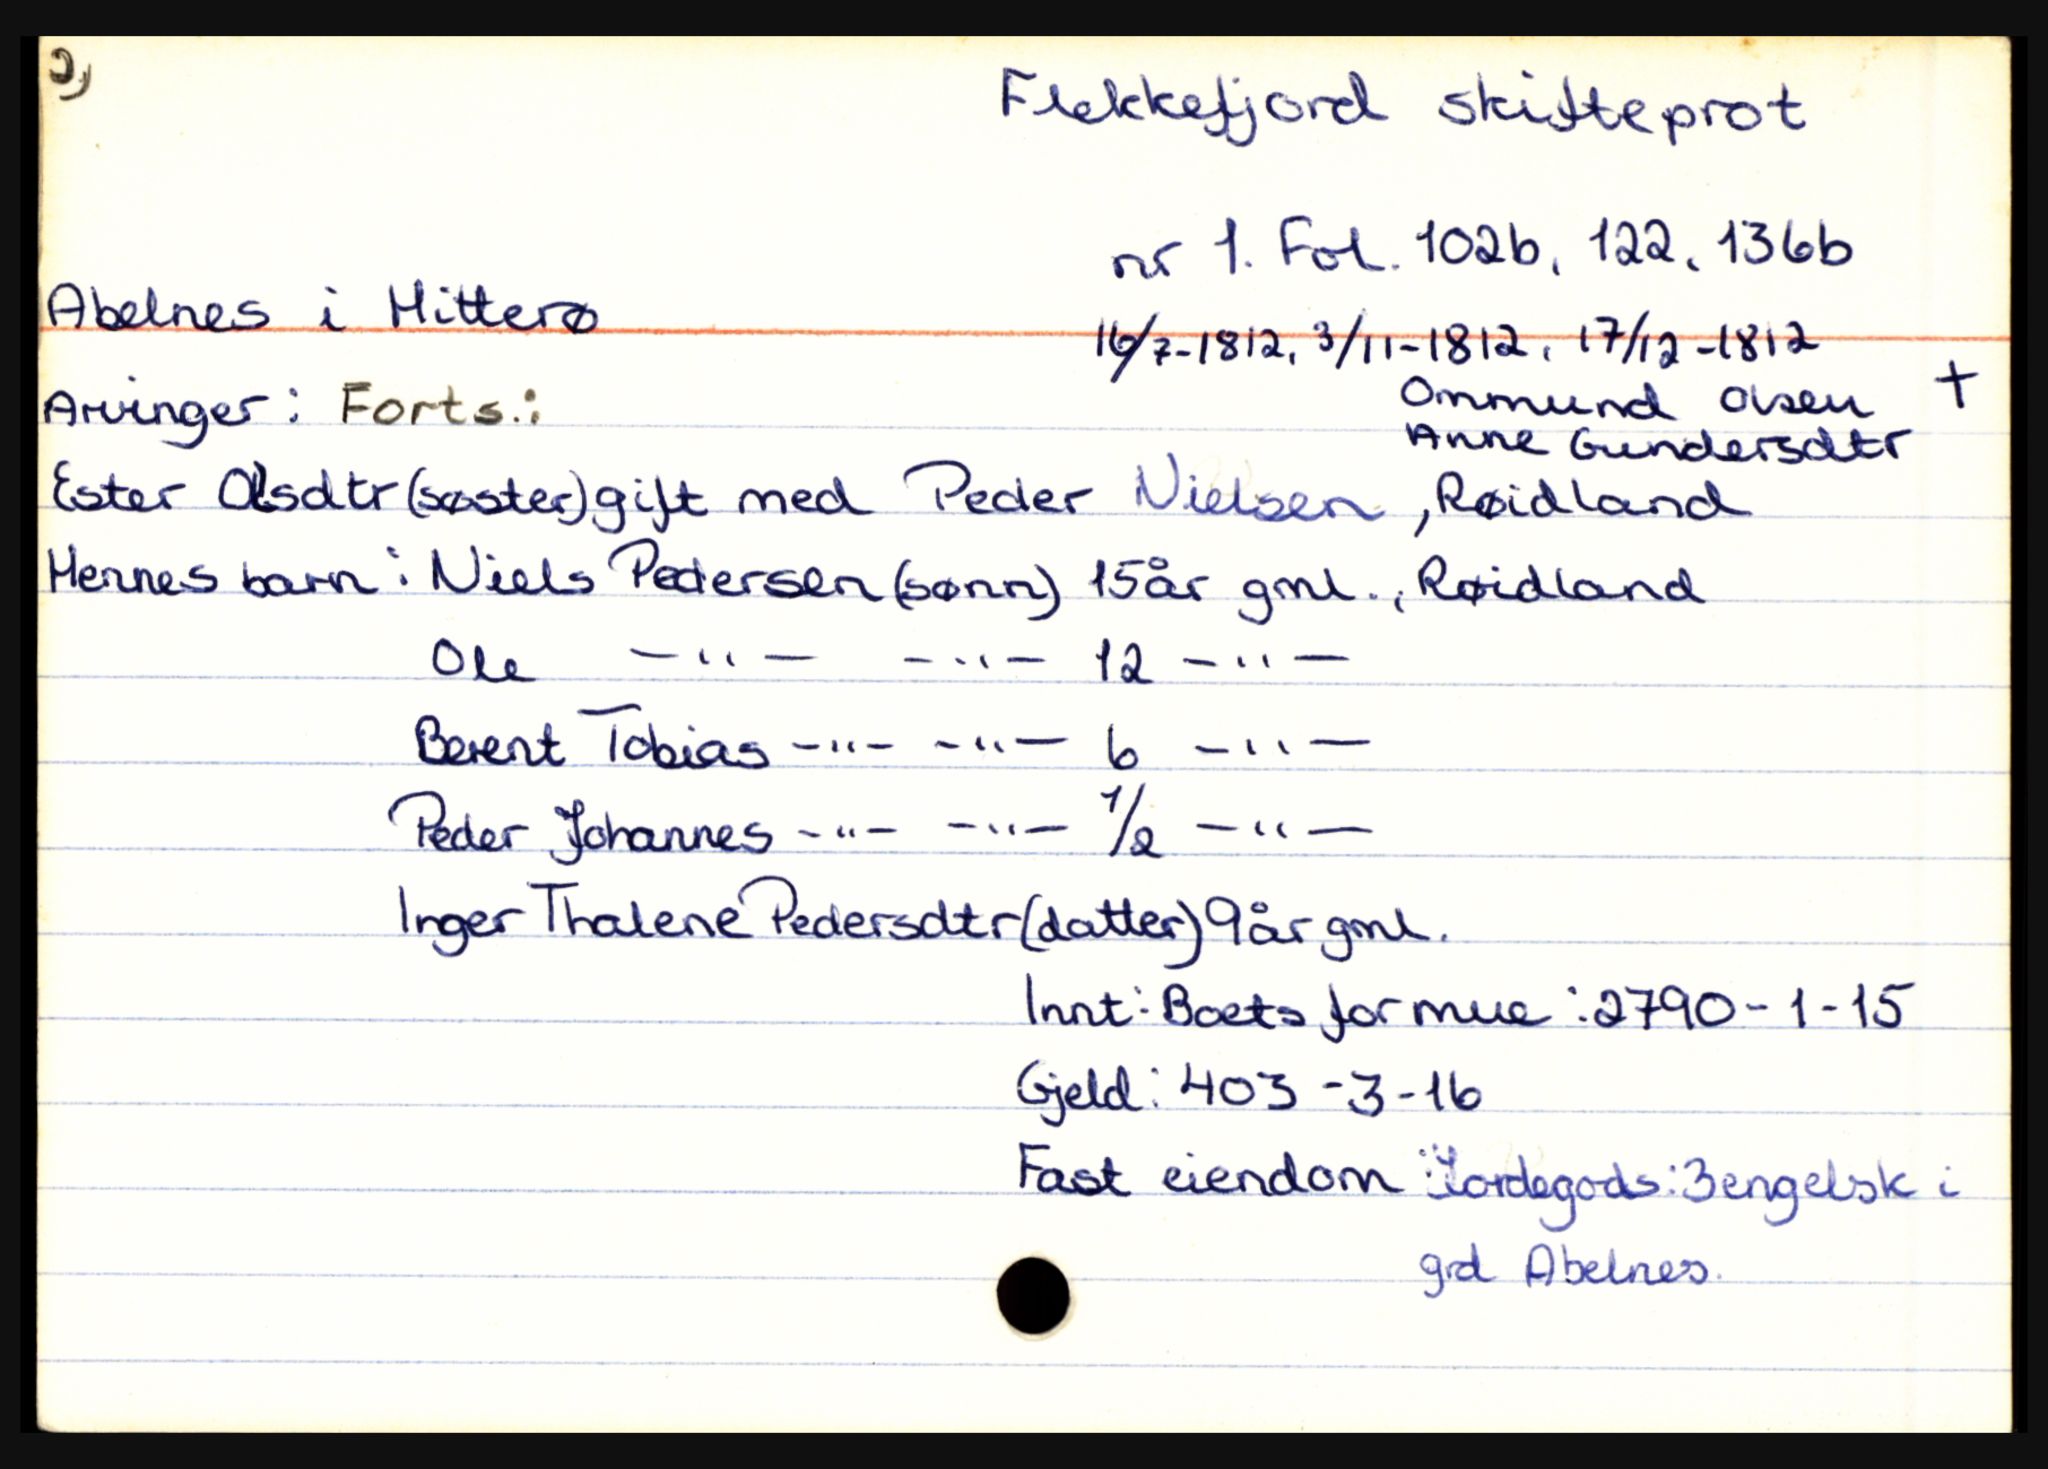 2)
Flekkefjord skifteprot
nr 1. Fol. 102b, 122, 136b
Abelnes i Hitterø
16/7-1812, 3/11-1812, 17/12-1812
Ommund Olsen †
Arvinger: Forts.:
Anne Gundersdtr
Ester Olsdtr (søster) gift med Peder Nielsen, Røidland
Hennes barn: Niels Pedersen (sønn) 15 år gml., Røidland
Ole -"- -"- 12 -"-
Berent Tobias -"- -"- 6 -"-
Peder Johannes -"- -"- 1/2 -"-
Inger Thalene Pedersdtr (datter) 9 år gml.
Innt: Boets formue: 2790-1-15
Gjeld: 403-3-16
Fast eiendom: Jordegods: 3 engelsk i
grd Abelnes.